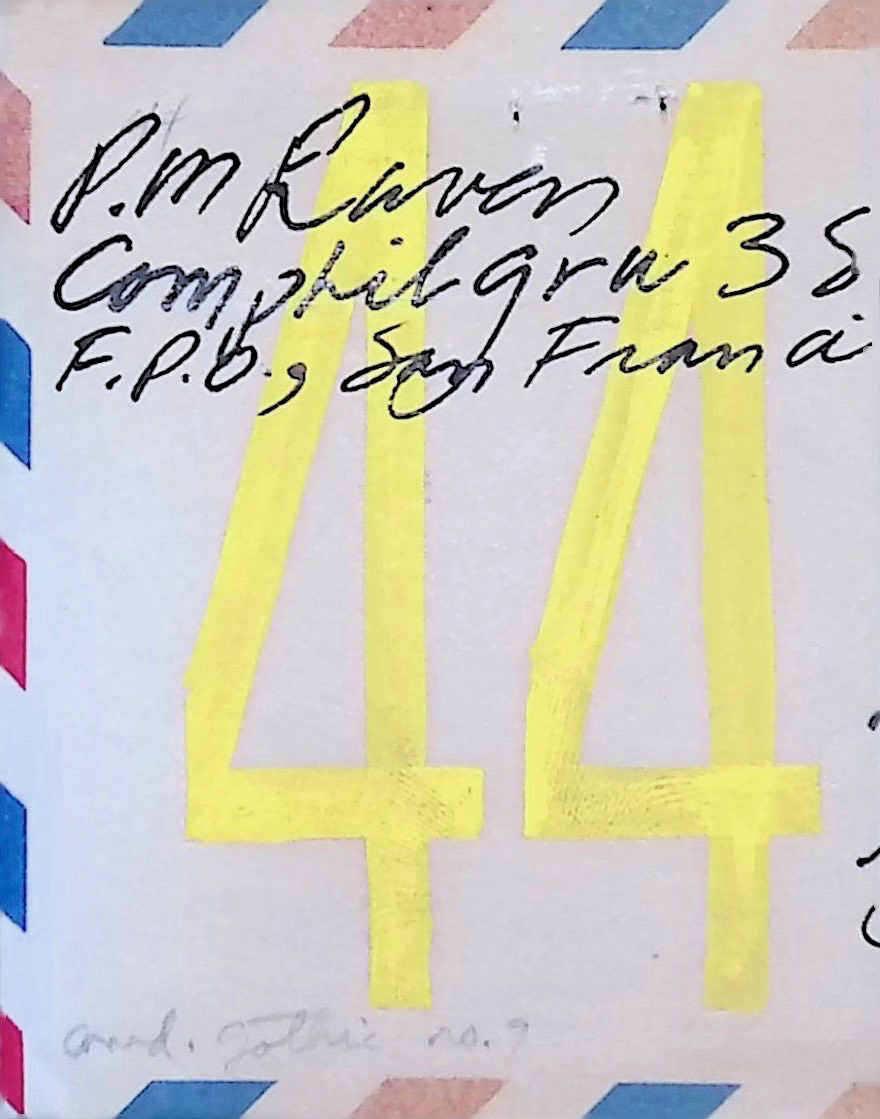 P.M Raven
Comphilgru 38
F.P.O., San Franci
44
Cond. Gothic no. 9